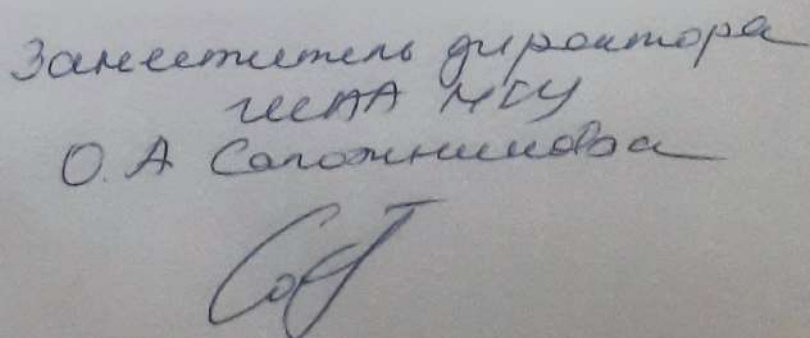 Заместитель директора
ИСАА МГУ
О. А Сапожникова